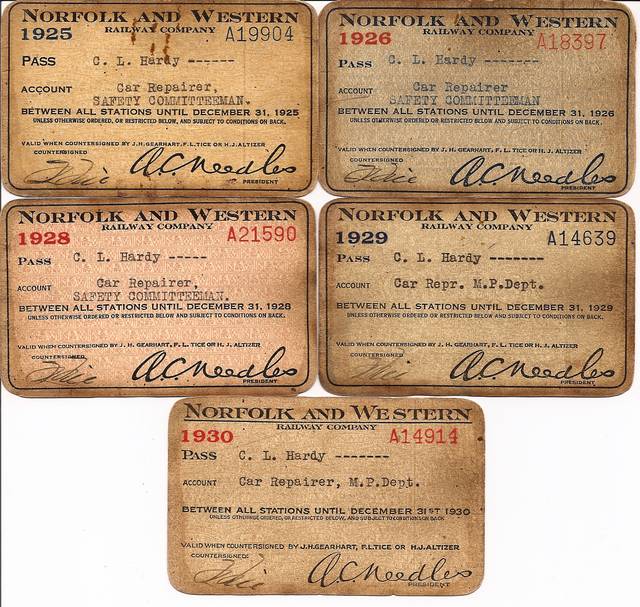 NORFOLK AND WESTERN
RAILWAY COMPANY
1925 A19904
PASS C. L. Hardy ------
ACCOUNT Car Repairer,
SAFETY COMMITTEEMAN.
BETWEEN ALL STATIONS UNTIL DECEMBER 31, 1925
UNLESS OTHERWISE ORDERED, OR RESTRICTED BELOW, AND SUBJECT TO CONDITIONS ON BACK.
VALID WHEN COUNTERSIGNED BY J.H. GEARHART, F. L. TICE OR H. J. ALTIZER
COUNTERSIGNED
A.C. Needles
PRESIDENT
NORFOLK AND WESTERN
RAILWAY COMPANY
1926 A18397
PASS C. L. Hardy -------
ACCOUNT Car Repairer
SAFETY COMMITTEEMAN
BETWEEN ALL STATIONS UNTIL DECEMBER 31, 1926
UNLESS OTHERWISE ORDERED, OR RESTRICTED BELOW, AND SUBJECT TO CONDITIONS ON BACK.
VALID WHEN COUNTERSIGNED BY J. H. GEARHART, F. L. TICE OR H. J. ALTIZER
COUNTERSIGNED
A.C. Needles
PRESIDENT
NORFOLK AND WESTERN
RAILWAY COMPANY
1928 A21590
PASS C. L. Hardy -----
ACCOUNT Car Repairer,
SAFETY COMMITTEEMAN.
BETWEEN ALL STATIONS UNTIL DECEMBER 31, 1928
UNLESS OTHERWISE ORDERED OR RESTRICTED BELOW AND SUBJECT TO CONDITIONS ON BACK.
VALID WHEN COUNTERSIGNED BY J. H. GEARHART, F. L. TICE OR H. J. ALTIZER
COUNTERSIGNED
A.C. Needles
PRESIDENT
NORFOLK AND WESTERN
RAILWAY COMPANY
1929 A14639
PASS C. L. Hardy -------
ACCOUNT Car Repr. M.P.Dept.
BETWEEN ALL STATIONS UNTIL DECEMBER 31, 1929
UNLESS OTHERWISE ORDERED OR RESTRICTED BELOW AND SUBJECT TO CONDITIONS ON BACK.
VALID WHEN COUNTERSIGNED BY J. H. GEARHART, F. L. TICE OR H. J. ALTIZER
COUNTERSIGNED
A.C. Needles
PRESIDENT
NORFOLK AND WESTERN
RAILWAY COMPANY
1930 A14914
PASS C. L. Hardy -------
ACCOUNT Car Repairer, M.P.Dept.
BETWEEN ALL STATIONS UNTIL DECEMBER 31ST 1930
UNLESS OTHERWISE ORDERED, OR RESTRICTED BELOW, AND SUBJECT TO CONDITIONS ON BACK
VALID WHEN COUNTERSIGNED BY J.H.GEARHART, F.L.TICE OR H.J.ALTIZER
COUNTERSIGNED:
A.C. Needles
PRESIDENT